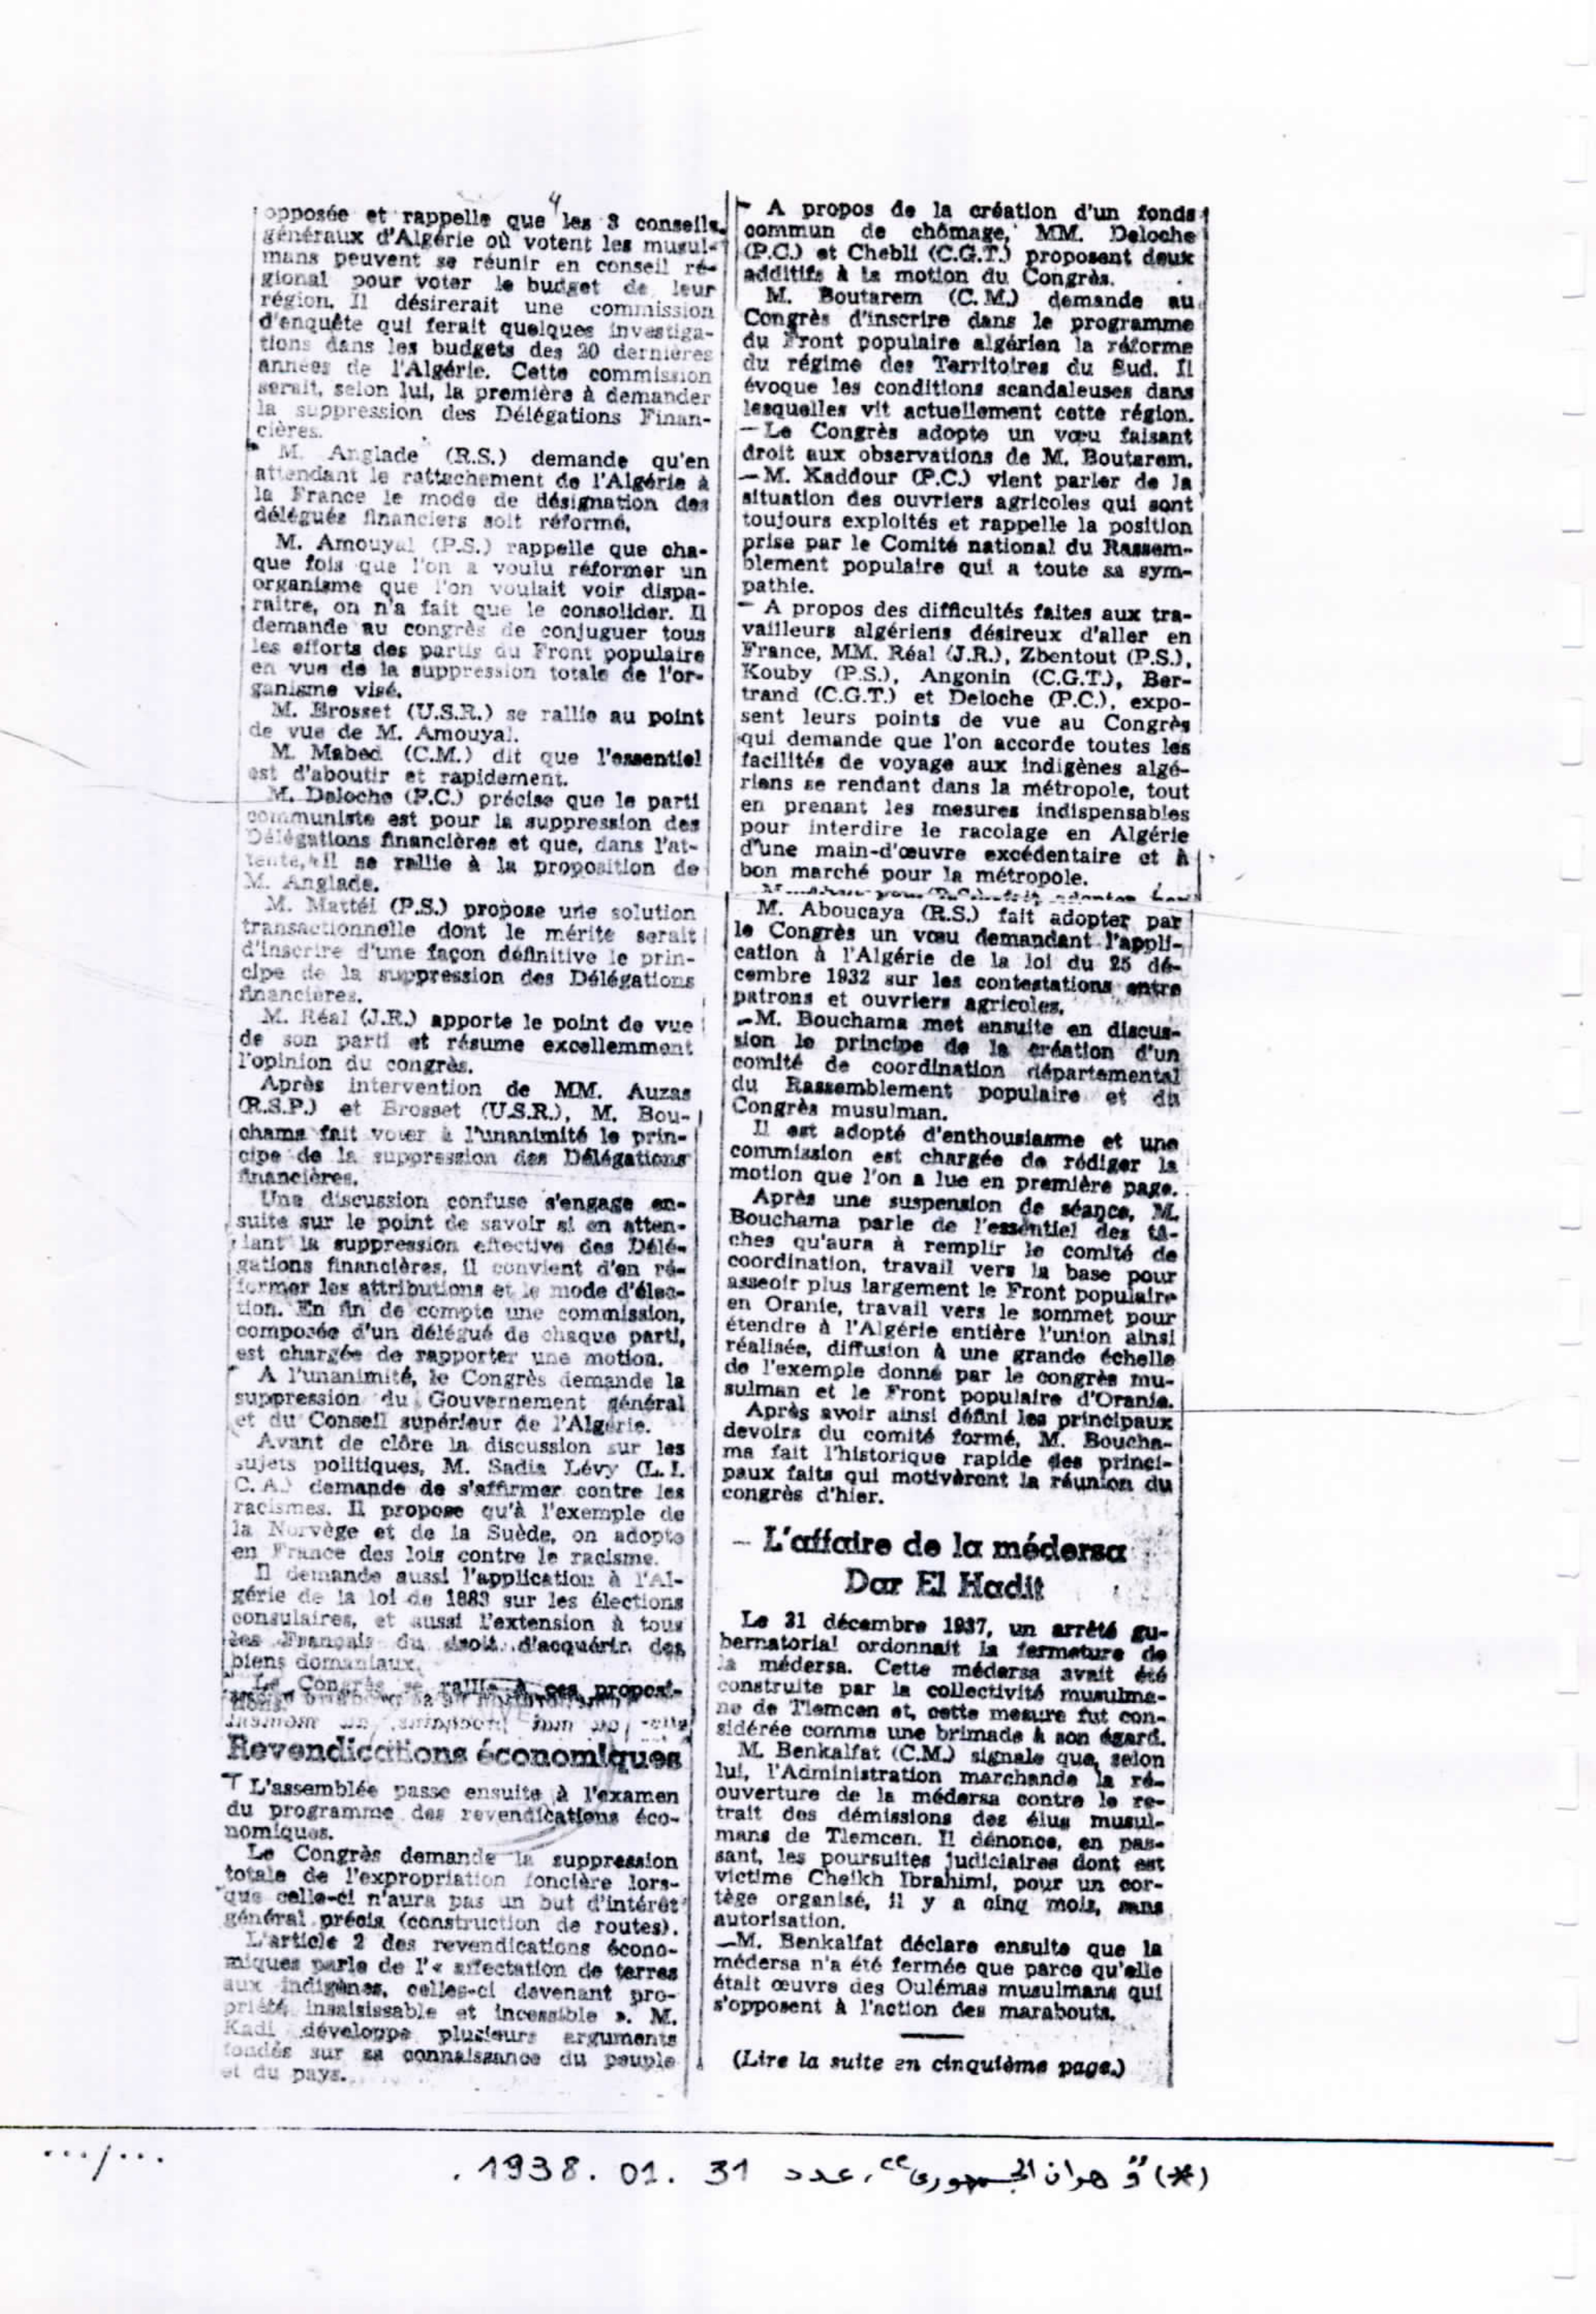 4
opposée et rappelle que les 3 conseils
généraux d'Algérie où votent les musul-
mans peuvent se réunir en conseil ré-
gional pour voter le budget de leur
région. Il désirerait une commission
d'enquête qui ferait quelques investiga-
tions dans les budgets des 20 dernières
années de l'Algérie. Cette commission
serait, selon lui, la première à demander
la suppression des Délégations Finan-
cières.
M. Anglade (R.S.) demande qu'en
attendant le rattachement de l'Algérie à
la France le mode de désignation des
délégués financiers soit réformé.
M. Amouyal (P.S.) rappelle que cha-
que fois que l'on a voulu réformer un
organisme que l'on voulait voir dispa-
raitre, on n'a fait que le consolider. Il
demande au congrès de conjuguer tous
les efforts des partis du Front populaire
en vue de la suppression totale de l'or-
ganisme visé.
M. Brosset (U.S.R.) se rallie au point
de vue de M. Amouyal.
M. Mabed (C.M.) dit que l'essentiel
est d'aboutir et rapidement.
M. Deloche (P.C.) précise que le parti
communiste est pour la suppression des
Délégations financières et que, dans l'at-
tente, il se rallie à la proposition de
M. Anglade.
M. Mattéi (P.S.) propose une solution
transactionnelle dont le mérite serait
d'inscrire d'une façon définitive le prin-
cipe de la suppression des Délégations
financières.
M. Réal (J.R.) apporte le point de vue
de son parti et résume excellemment
l'opinion du congrès.
Après intervention de MM. Auzas
(R.S.P.) et Brosset (U.S.R.), M. Bou-
chama fait voter à l'unanimité le prin-
cipe de la suppression des Délégations
financières.
Une discussion confuse s'engage en-
suite sur le point de savoir si en atten-
dant la suppression effective des Délé-
gations financières, il convient d'en ré-
former les attributions et le mode d'élec-
tion. En fin de compte une commission,
composée d'un délégué de chaque parti,
est chargée de rapporter une motion.
A l'unanimité, le Congrès demande la
suppression du Gouvernement général
et du Conseil supérieur de l'Algérie.
Avant de clôre la discussion sur les
sujets politiques, M. Sadia Lévy (L.I.
C.A.) demande de s'affirmer contre les
racismes. Il propose qu'à l'exemple de
la Norvège et de la Suède, on adopte
en France des lois contre le racisme.
Il demande aussi l'application à l'Al-
gérie de la loi de 1883 sur les élections
consulaires, et aussi l'extension à tous
les Français du droit d'acquérir des
biens domaniaux.
Le Congrès se rallie à ces proposi-
tions.
Revendications économiques
L'assemblée passe ensuite à l'examen
du programme des revendications éco-
nomiques.
Le Congrès demande la suppression
totale de l'expropriation foncière lors-
que celle-ci n'aura pas un but d'intérêt
général précis (construction de routes).
L'article 2 des revendications écono-
miques parle de l'« affectation de terres
aux indigènes, celles-ci devenant pro-
priété insaisissable et incessible ». M.
Kadi développe plusieurs arguments
fondés sur sa connaissance du peuple
et du pays.
A propos de la création d'un fonds
commun de chômage, MM. Deloche
(P.C.) et Chebli (C.G.T.) proposent deux
additifs à la motion du Congrès.
M. Boutarem (C.M.) demande au
Congrès d'inscrire dans le programme
du Front populaire algérien la réforme
du régime des Territoires du Sud. Il
évoque les conditions scandaleuses dans
lesquelles vit actuellement cette région.
— Le Congrès adopte un vœu faisant
droit aux observations de M. Boutarem.
— M. Kaddour (P.C.) vient parler de la
situation des ouvriers agricoles qui sont
toujours exploités et rappelle la position
prise par le Comité national du Rassem-
blement populaire qui a toute sa sym-
pathie.
— A propos des difficultés faites aux tra-
vailleurs algériens désireux d'aller en
France, MM. Réal (J.R.), Zbentout (P.S.),
Kouby (P.S.), Angonin (C.G.T.), Ber-
trand (C.G.T.) et Deloche (P.C.), expo-
sent leurs points de vue au Congrès
qui demande que l'on accorde toutes les
facilités de voyage aux indigènes algé-
riens se rendant dans la métropole, tout
en prenant les mesures indispensables
pour interdire le racolage en Algérie
d'une main-d'œuvre excédentaire et à
bon marché pour la métropole.
M. Aboucaya (R.S.) fait adopter par
le Congrès un vœu demandant l'appli-
cation à l'Algérie de la loi du 25 dé-
cembre 1932 sur les contestations entre
patrons et ouvriers agricoles.
— M. Bouchama met ensuite en discus-
sion le principe de la création d'un
comité de coordination départemental
du Rassemblement populaire et du
Congrès musulman.
Il est adopté d'enthousiasme et une
commission est chargée de rédiger la
motion que l'on a lue en première page.
Après une suspension de séance, M.
Bouchama parle de l'essentiel des tâ-
ches qu'aura à remplir le comité de
coordination, travail vers la base pour
asseoir plus largement le Front populaire
en Oranie, travail vers le sommet pour
étendre à l'Algérie entière l'union ainsi
réalisée, diffusion à une grande échelle
de l'exemple donné par le congrès mu-
sulman et le Front populaire d'Oranie.
Après avoir ainsi défini les principaux
devoirs du comité formé, M. Boucha-
ma fait l'historique rapide des princi-
paux faits qui motivèrent la réunion du
congrès d'hier.
— L'affaire de la médersa
Dar El Hadit
Le 31 décembre 1937, un arrêté gu-
bernatorial ordonnait la fermeture de
la médersa. Cette médersa avait été
construite par la collectivité musulma-
ne de Tlemcen et, cette mesure fut con-
sidérée comme une brimade à son égard.
M. Benkalfat (C.M.) signale que, selon
lui, l'Administration marchande la ré-
ouverture de la médersa contre le re-
trait des démissions des élus musul-
mans de Tlemcen. Il dénonce, en pas-
sant, les poursuites judiciaires dont est
victime Cheikh Ibrahimi, pour un cor-
tège organisé, il y a cinq mois, sans
autorisation.
— M. Benkalfat déclare ensuite que la
médersa n'a été fermée que parce qu'elle
était œuvre des Oulémas musulmans qui
s'opposent à l'action des marabouts.
(Lire la suite en cinquième page.)
.../...
(*) "وهران الجمهوري"، عدد 31 .01 .1938 .